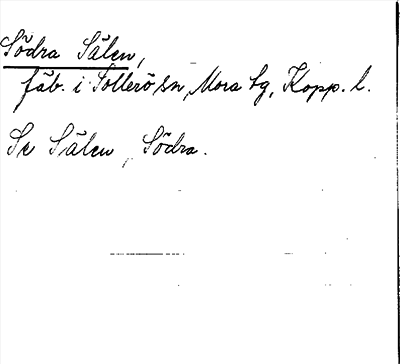 Södra Sälen,
fäb. i Sollerö sn, Mora tg, Kopp. l.
Se Sälen, Södra.